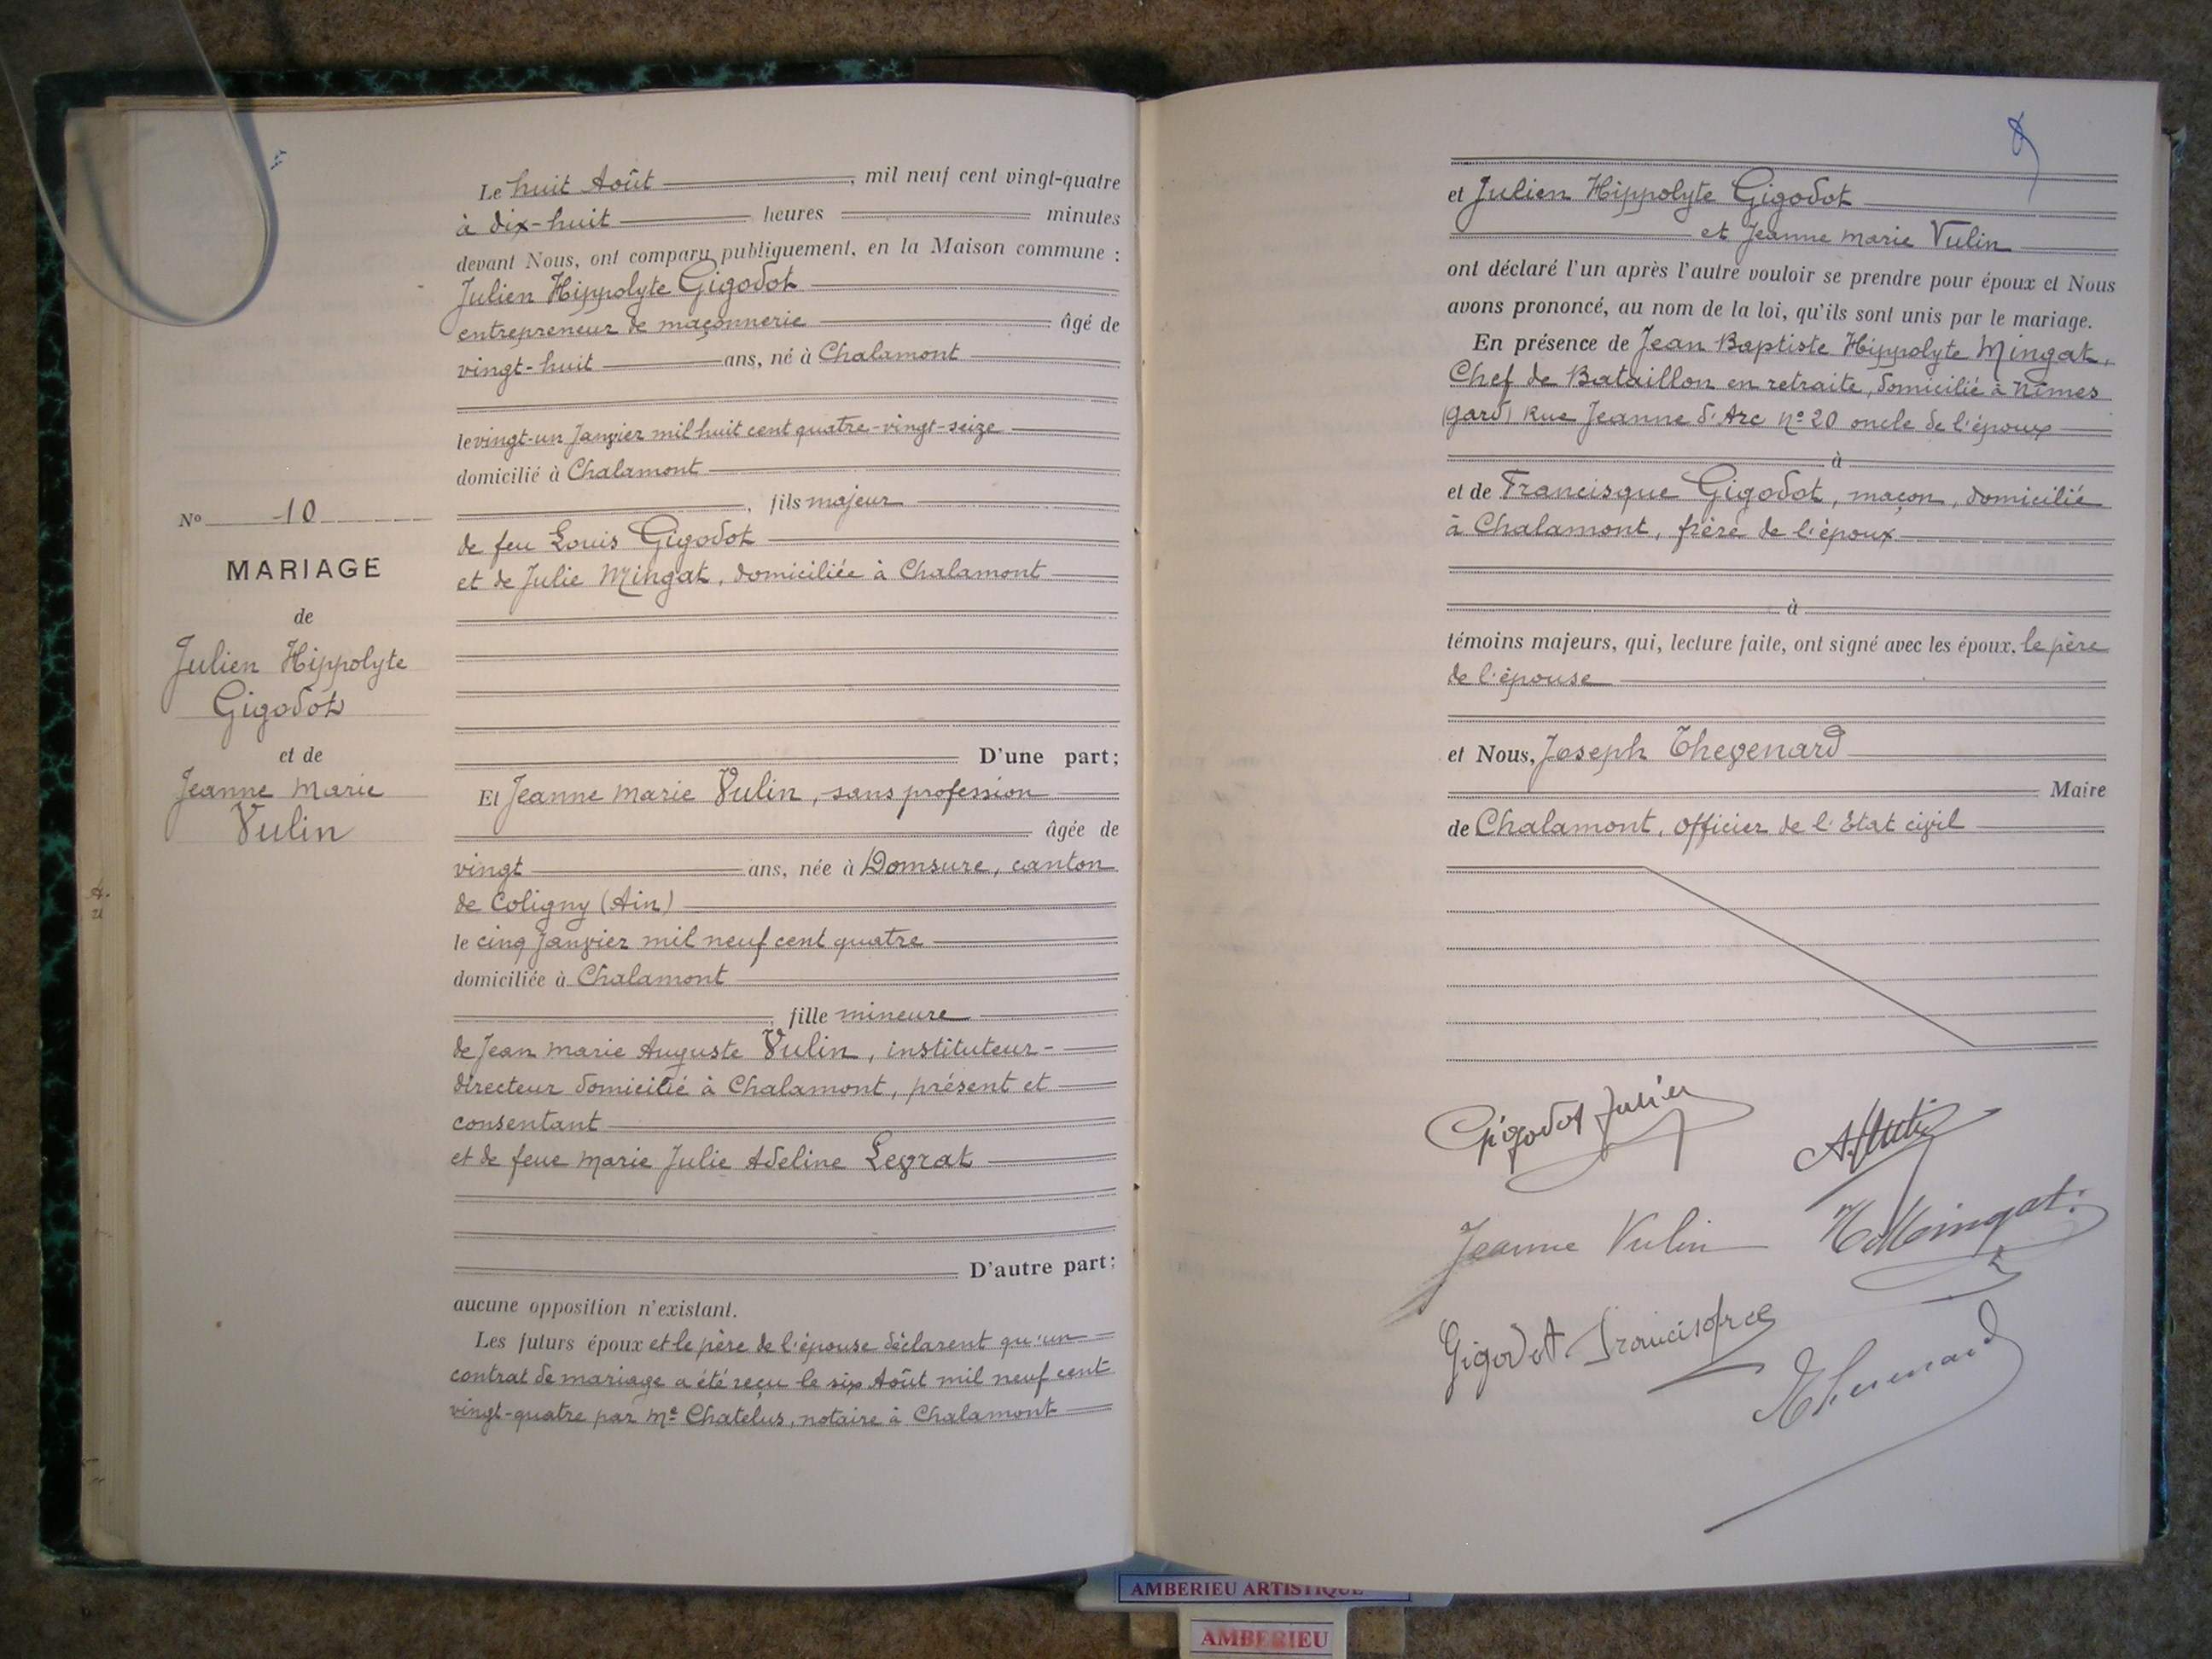 Le huit Août, mil neuf cent vingt-quatre
à dix-huit heures minutes
devant Nous, ont comparu publiquement, en la Maison commune :
Julien Hippolyte Gigodot
entrepreneur de maçonnerie âgé de
vingt-huit ans, né à Chalamont
le vingt-un Janvier mil huit cent quatre-vingt-seize
domicilié à Chalamont
, fils majeur
de feu Louis Gigodot
et de Julie Mingat, domiciliée à Chalamont
D'une part;
No 10
MARIAGE
de
Julien Hippolyte
Gigodot
et de
Jeanne Marie
Vulin
Et Jeanne Marie Vulin, sans profession
âgée de
vingt ans, née à Domsure, canton
de Coligny (Ain)
le cinq Janvier mil neuf cent quatre
domiciliée à Chalamont
, fille mineure
de Jean Marie Auguste Vulin, instituteur-
directeur domicilié à Chalamont, présent et
consentant
et de feue Marie Julie Adeline Levrat
D'autre part;
aucune opposition n'existant.
Les futurs époux et le père de l'épouse déclarent qu'un
contrat de mariage a été reçu le six Août mil neuf cent
vingt-quatre par Me Chatelus, notaire à Chalamont
et Julien Hippolyte Gigodot
et Jeanne Marie Vulin
ont déclaré l'un après l'autre vouloir se prendre pour époux et Nous
avons prononcé, au nom de la loi, qu'ils sont unis par le mariage.
En présence de Jean Baptiste Hippolyte Mingat,
Chef de Bataillon en retraite, domicilié à Nîmes
(Gard) Rue Jeanne d'Arc No 20 oncle de l'époux
à
et de Francisque Gigodot, maçon, domicilié
à Chalamont, frère de l'époux
à
témoins majeurs, qui, lecture faite, ont signé avec les époux, le père
de l'épouse
et Nous, Joseph Thevenard
Maire
de Chalamont, officier de l'Etat civil
Gigodot Julien
Jeanne Vulin
H Mingat
Gigodot Francisque
Thevenard
AMBERIEU ARTISTIQUE
AMBERIEU